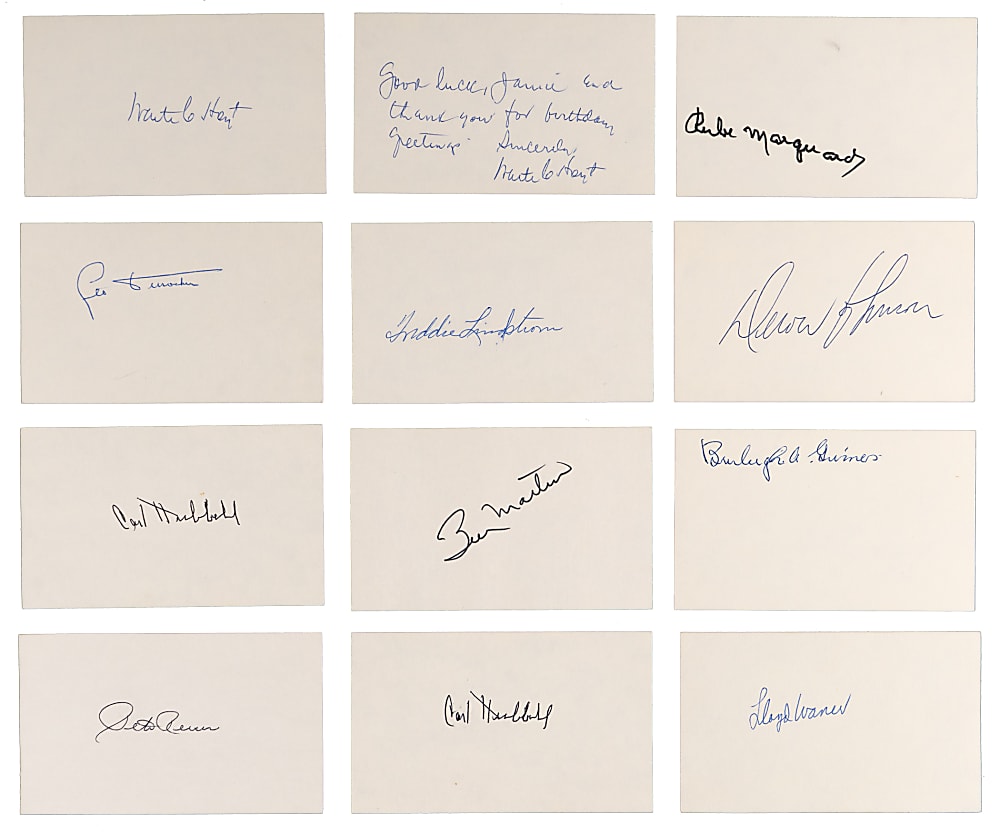 Waite C Hoyt
Good luck, Jamie and
thank you for birthday
greetings Sincerely,
Waite C Hoyt
Rube Marquard
Leo Durocher
Freddie Lindstrom
Johnson
Carl Hubbell
Billy Martin
Burleigh A. Grimes
Carl Hubbell
Lloyd Waner